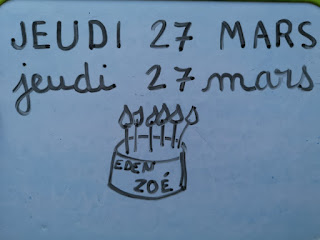 JEUDI 27 MARS
jeudi 27 mars
EDEN
ZOÉ